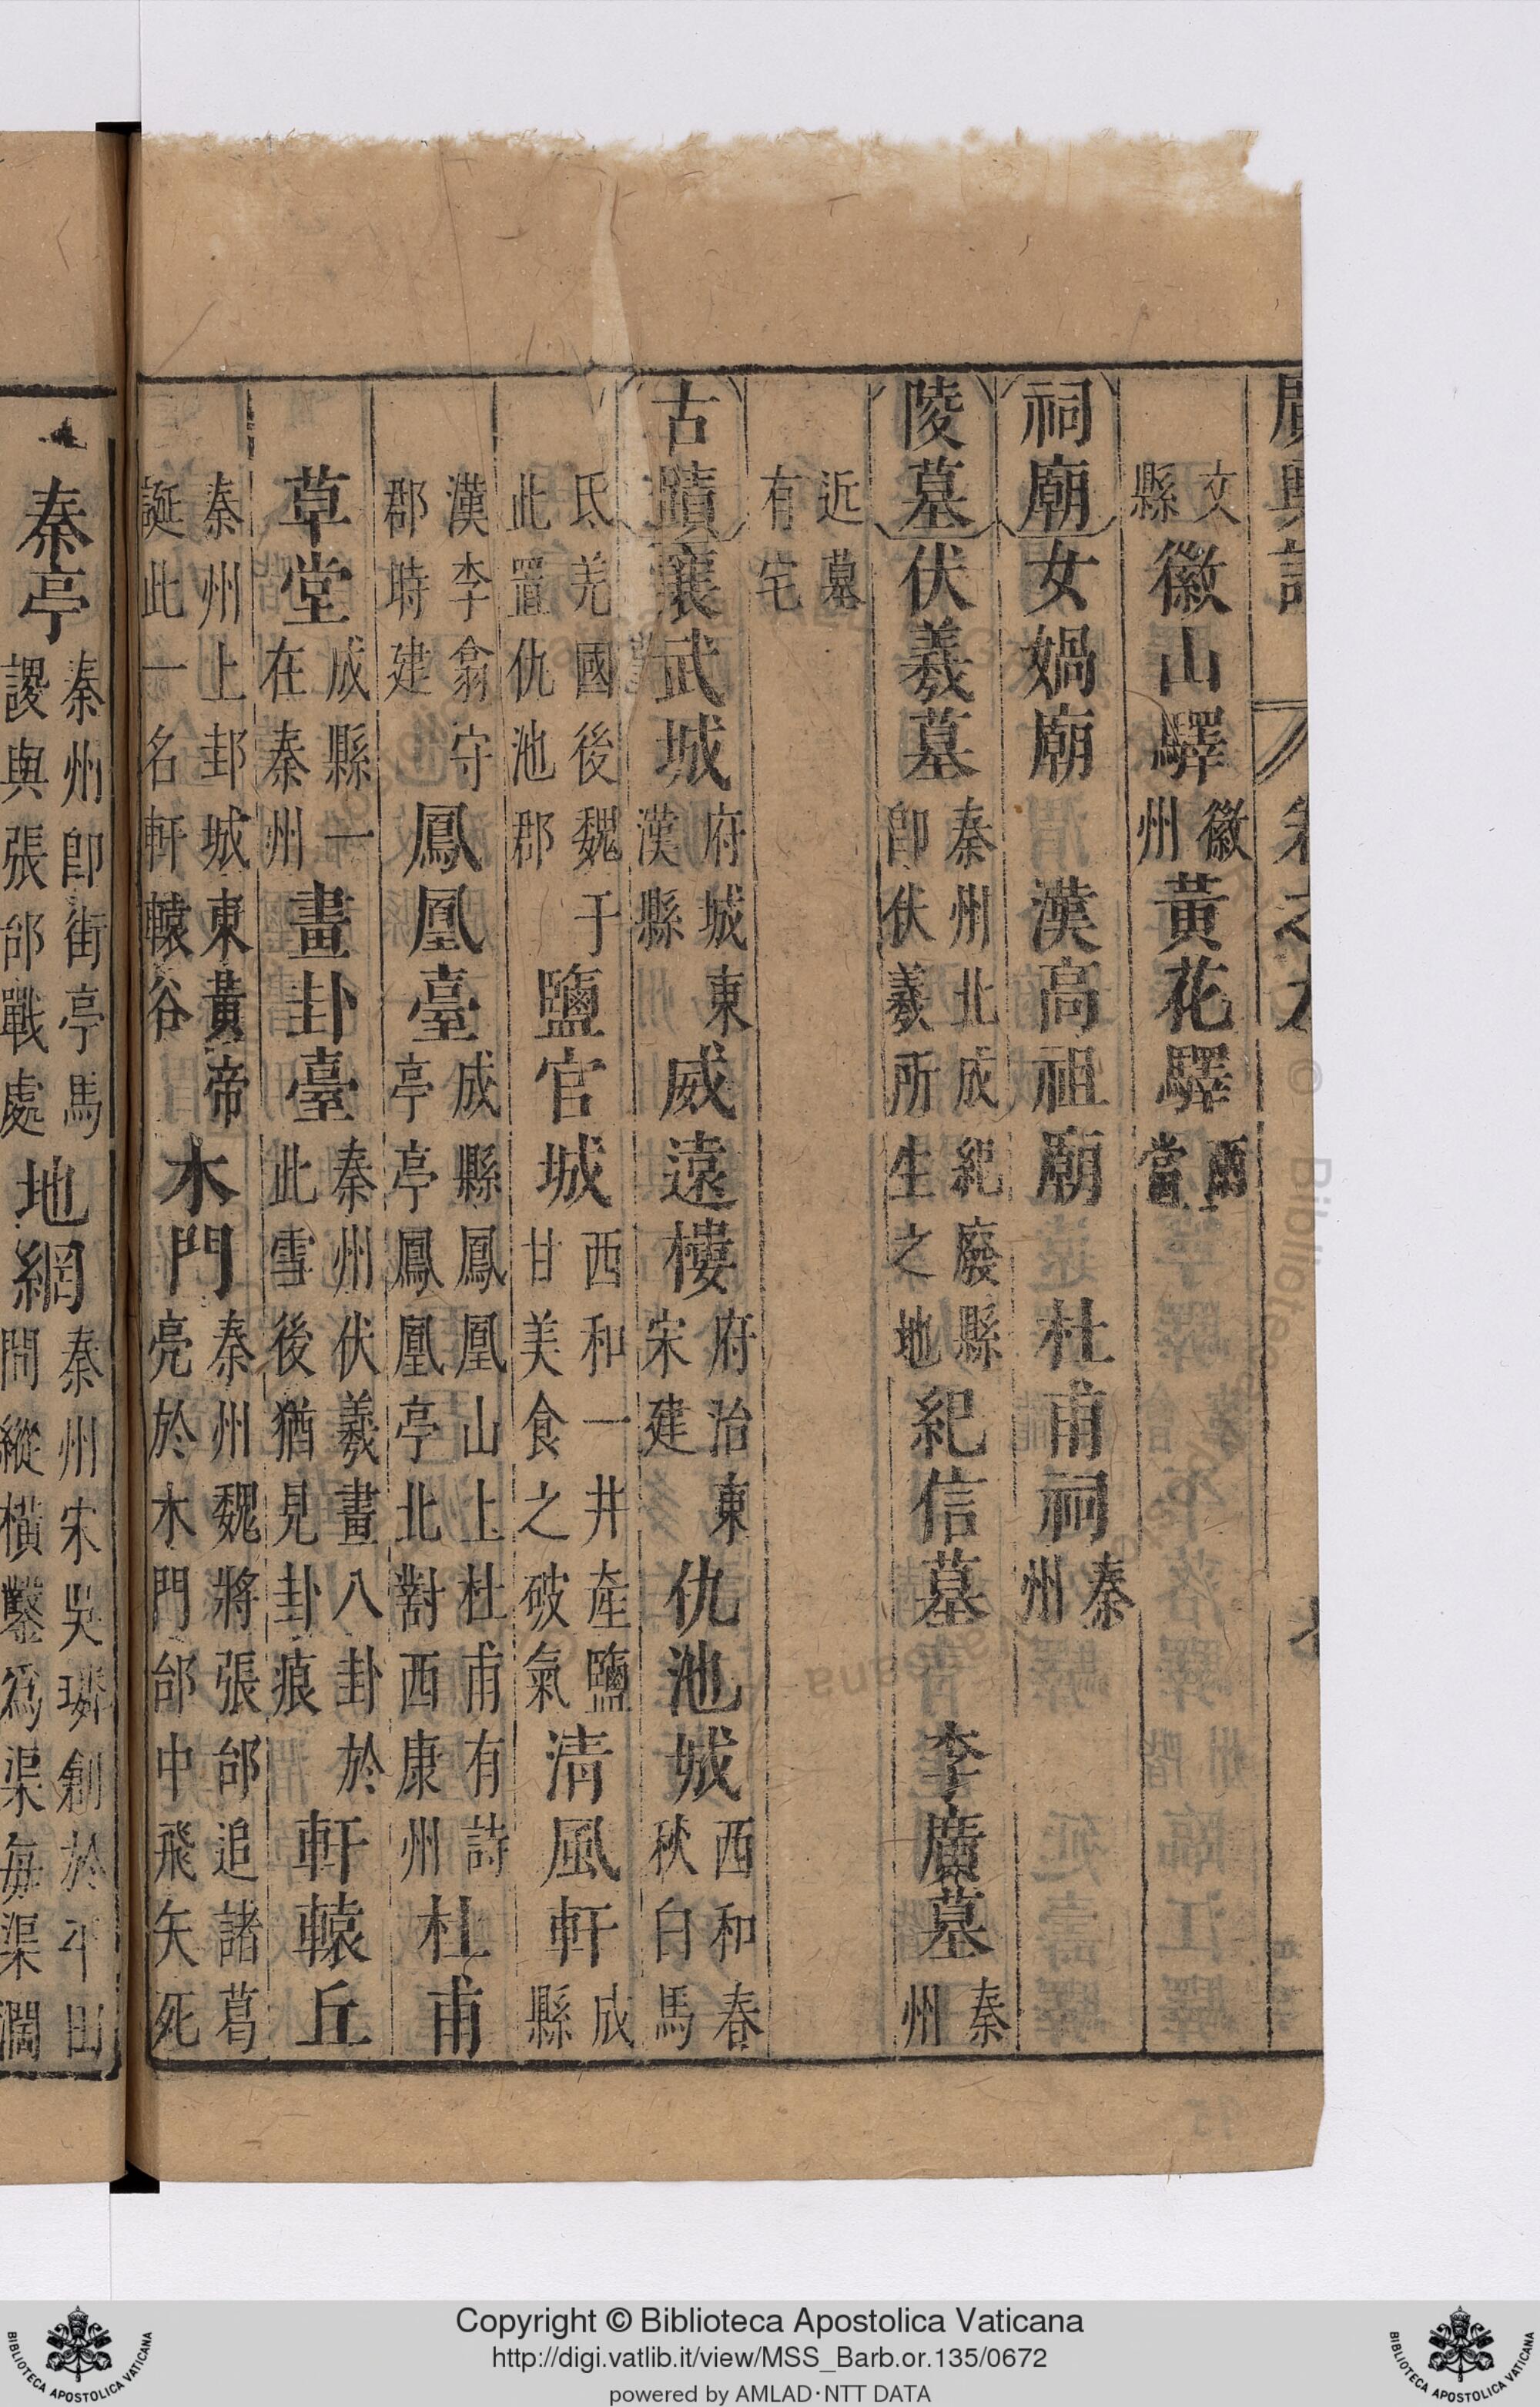 廣輿記 卷之九
文縣 徽山驛 徽州 黃花驛 兩當
祠廟 女媧廟 漢高祖廟 杜甫祠 秦州
陵墓 伏羲墓 秦州北成紀廢縣卽伏羲所生之地 紀信墓 李廣墓 秦州
近墓有宅
古蹟 襄武城 府城東漢縣 威遠樓 府治東宋建 仇池城 西和春秋白馬
氐羌國後魏于此置仇池郡 鹽官城 西和一井產鹽甘美食之破氣 清風軒 成縣
漢李翕守郡時建 鳳凰臺 成縣鳳凰山上杜甫有詩亭亭鳳凰亭北對西康州 杜甫
草堂 成縣一在秦州 畫卦臺 秦州伏羲畫八卦於此雪後猶見卦痕 軒轅丘
秦州上邽城東黃帝誕此一名軒轅谷 木門 秦州魏將張郃追諸葛亮於木門郃中飛矢死
秦亭 秦州卽街亭馬謖與張郃戰處 地網 秦州宋吳璘創於平田間縱橫鑿爲渠每渠濶
Copyright © Biblioteca Apostolica Vaticana
http://digi.vatlib.it/view/MSS_Barb.or.135/0672
powered by AMLAD·NTT DATA
BIBLIOTECA APOSTOLICA VATICANA
BIBLIOTECA APOSTOLICA VATICANA